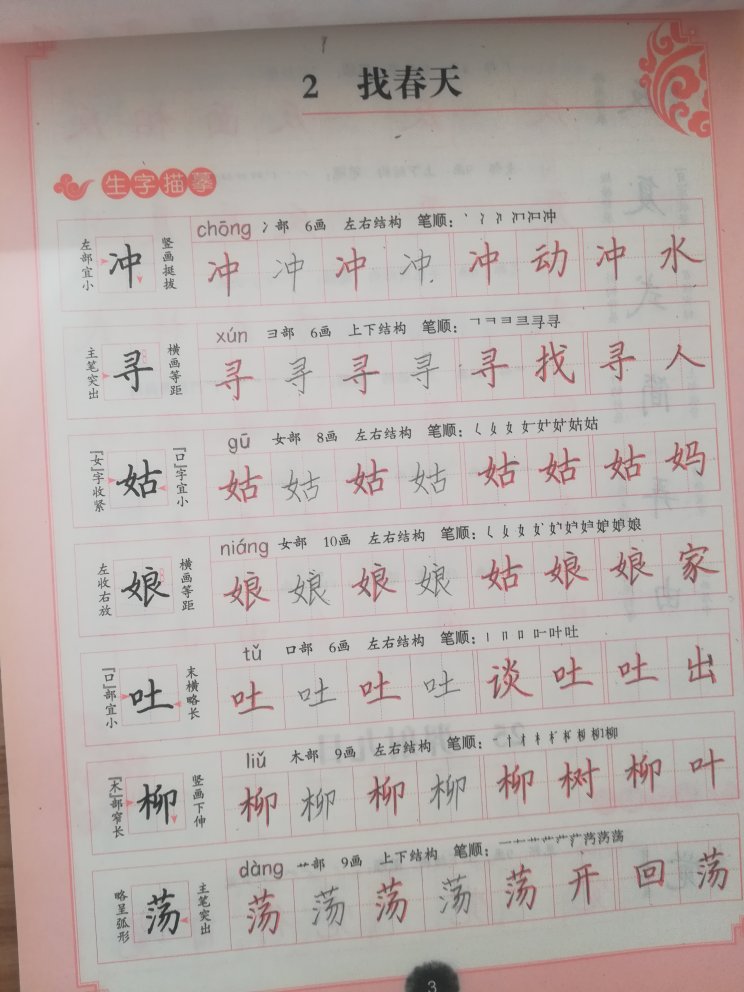 2 找春天
生字描摹
chōng 冫部 6画 左右结构 笔顺：
左部宜小 冲 竖画挺拔 冲 冲 冲 冲 冲 动 冲 水
xún ヨ部 6画 上下结构 笔顺：
主笔突出 寻 横画等距 寻 寻 寻 寻 寻 找 寻 人
gū 女部 8画 左右结构 笔顺：
『女』字收紧 姑 『口』字宜小 姑 姑 姑 姑 姑 姑 姑 妈
niáng 女部 10画 左右结构 笔顺：
左收右放 娘 横画等距 娘 娘 娘 娘 姑 娘 娘 家
tǔ 口部 6画 左右结构 笔顺：
『口』部宜小 吐 末横略长 吐 吐 吐 吐 谈 吐 吐 出
liǔ 木部 9画 左右结构 笔顺：
『木』部窄长 柳 竖画下伸 柳 柳 柳 柳 柳 树 柳 叶
dàng 艹部 9画 上下结构 笔顺：
略呈弧形 荡 主笔突出 荡 荡 荡 荡 荡 开 回 荡
3